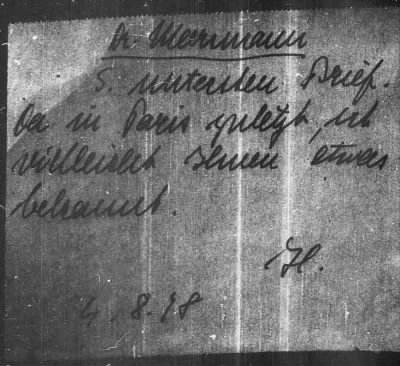 Dr. Meermann
S. untersten Brief.
Da in Paris zuletzt, ist
vielleicht Ihnen etwas
bekannt.
H.
4.8.48